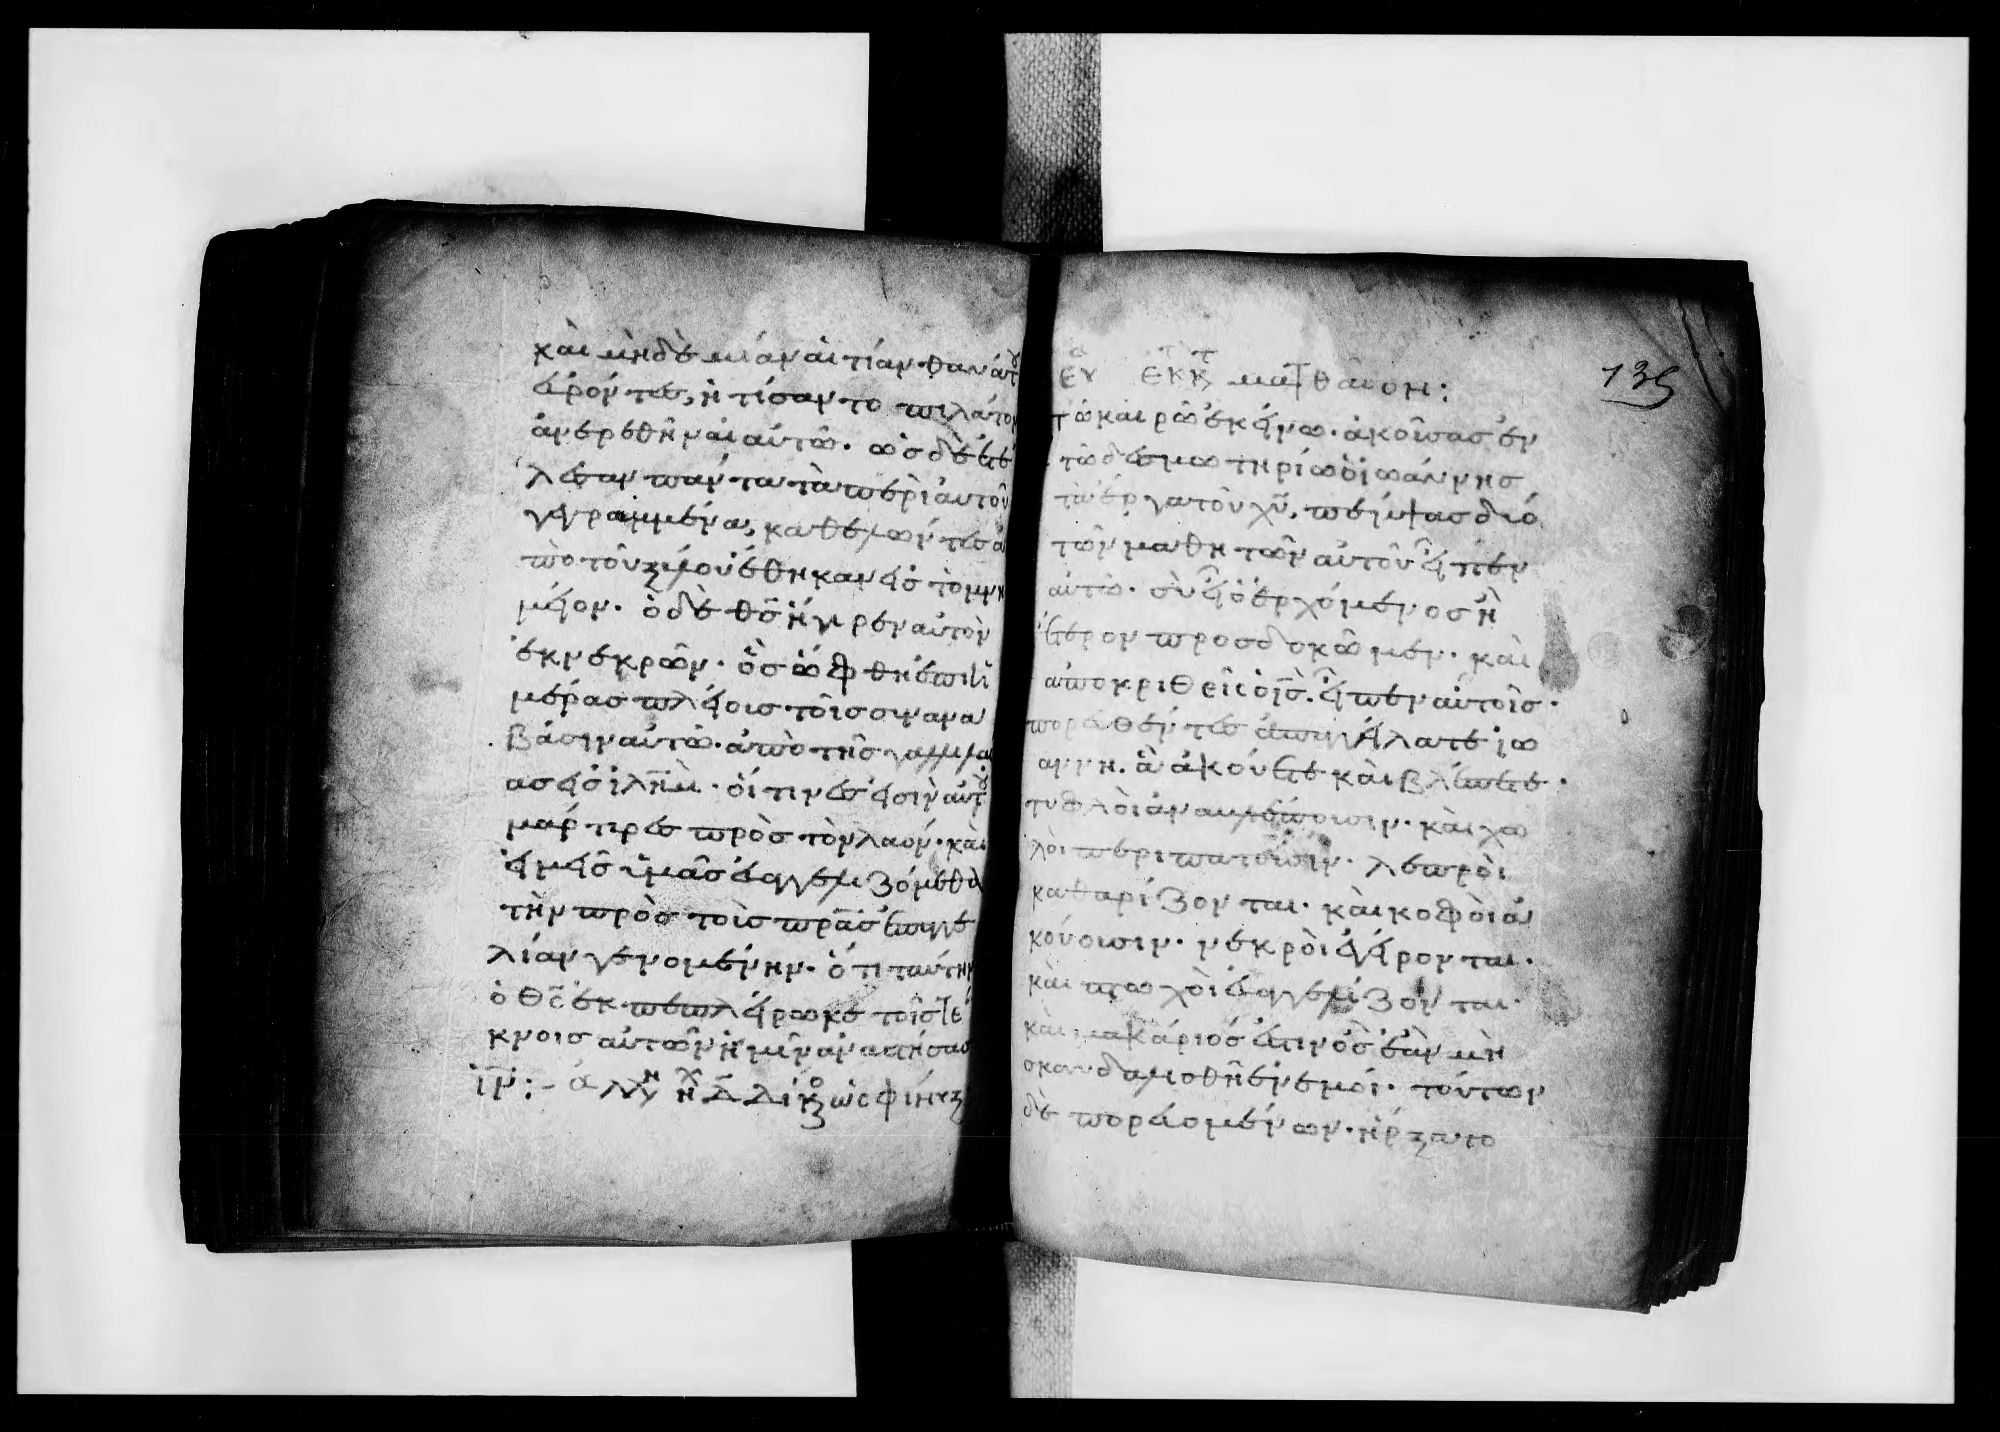 καὶ μηδὲ μίαν αἰτίαν θανάτου
εὑρόντες, ἠτίσαντο πιλάτον
ἀνερεθῆναι αὐτῶ. ὡς δὲ ἐτέ
λεσαν πάντα τὰ περὶ αὐτοῦ
γεγραμμένα, καθελόντες ἀ
πὸ τοῦ ξύλου ἔθηκαν εἰς τὸ μνη
μεῖον. ὁ δὲ θς ἤγειρεν αὐτὸν
ἐκ νεκρῶν. ὃς ὤφθη ἐπὶ ἡ
μέρας πλείοις τοῖς συνανα
βάσιν αὐτῶ. ἀπὸ τῆς γαλιλαί
ας εἰς ἱλημ. οἵτινες εἰσὶν αὐτοῦ
μάρτυρες πρὸς τὸν λαόν. καὶ
ἡμεῖς ὑμᾶς εὐαγγελιζόμεθα
τὴν πρὸς τοὺς πρας ἐπαγγε
λίαν γενομένην. ὅτι ταύτην
ὁ θς ἐκπεπλήρωκε τοῖς τέ
κνοις αὐτῶν ἡμῖν ἀναστήσας
ιν:-
135
ευ εκ κ ματθαιον:
τῶ καιρῶ ἐκείνω. ἀκούσας ἐν
τῶ δεσμωτηρίω ὁ ἰωάννης
τὰ ἔργα τοῦ χυ, πέμψας δύο
τῶν μαθητῶν αὐτοῦ εἶπεν
αὐτῶ. σὺ εἶ ὁ ἐρχόμενος ἢ
ἕτερον προσδοκῶμεν. καὶ
ἀποκριθεὶς ὁ ις. εἶπεν αὐτοῖς.
πορευθέντες ἀπαγγείλατε ἰω
άννη. ἃ ἀκούετε καὶ βλέπετε.
τυφλοὶ ἀναβλέπουσιν. καὶ χω
λοὶ περιπατοῦσιν. λεπροὶ
καθαρίζονται. καὶ κοφοὶ ἀ
κούουσιν. νεκροὶ ἐγείρονται.
καὶ πτωχοὶ εὐαγγελίζονται.
καὶ μακάριός ἐστιν ὃς ἐὰν μὴ
σκανδαλισθῆ ἐν ἐμοί. τούτων
δὲ πορευομένων. ἤρξατο